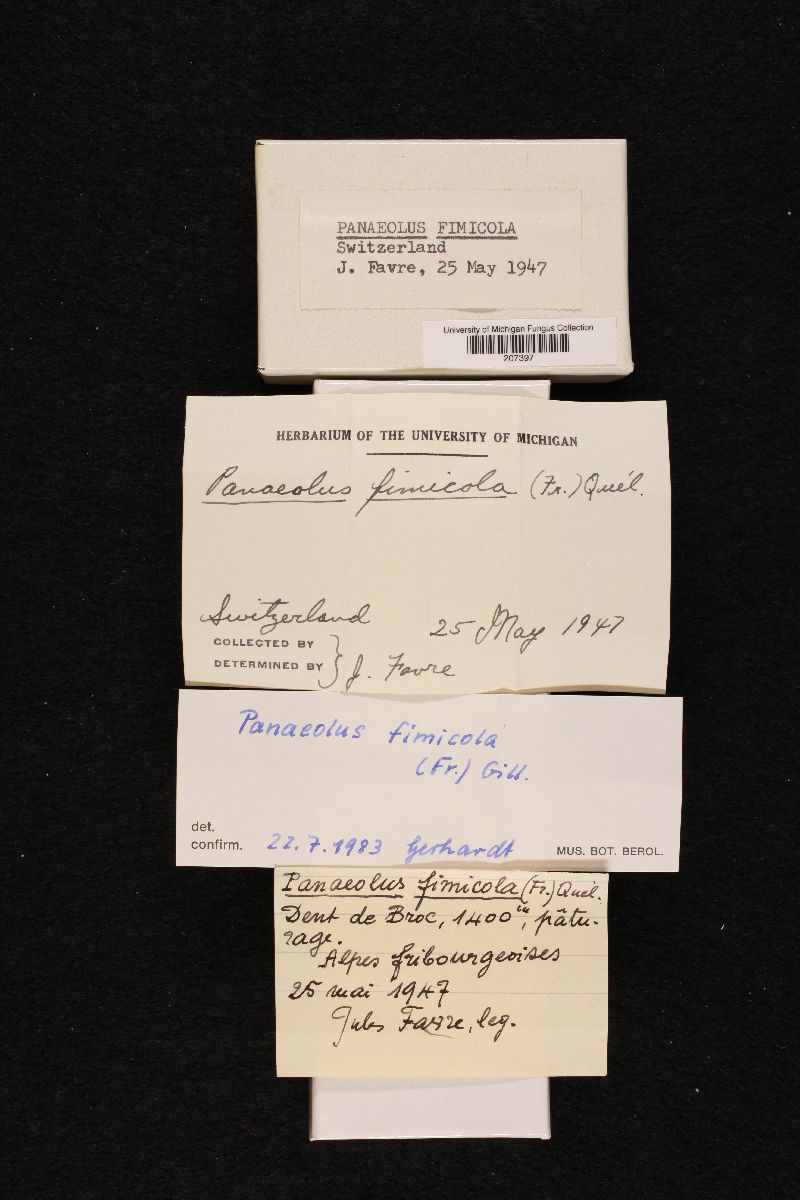 PANAEOLUS FIMICOLA
Switzerland
J. Favre, 25 May 1947
University of Michigan Fungus Collection
207397
HERBARIUM OF THE UNIVERSITY OF MICHIGAN
Panaeolus fimicola (Fr.) Quél.
Switzerland
25 May 1947
COLLECTED BY
DETERMINED BY } J. Favre
Panaeolus fimicola
(Fr.) Gill.
det.
confirm. 22.7.1983 Gerhardt MUS. BOT. BEROL.
Panaeolus fimicola (Fr.) Quél.
Dent de Broc, 1400 m, pâtu-
rage.
Alpes fribourgeoises
25 mai 1947
Jules Favre, leg.